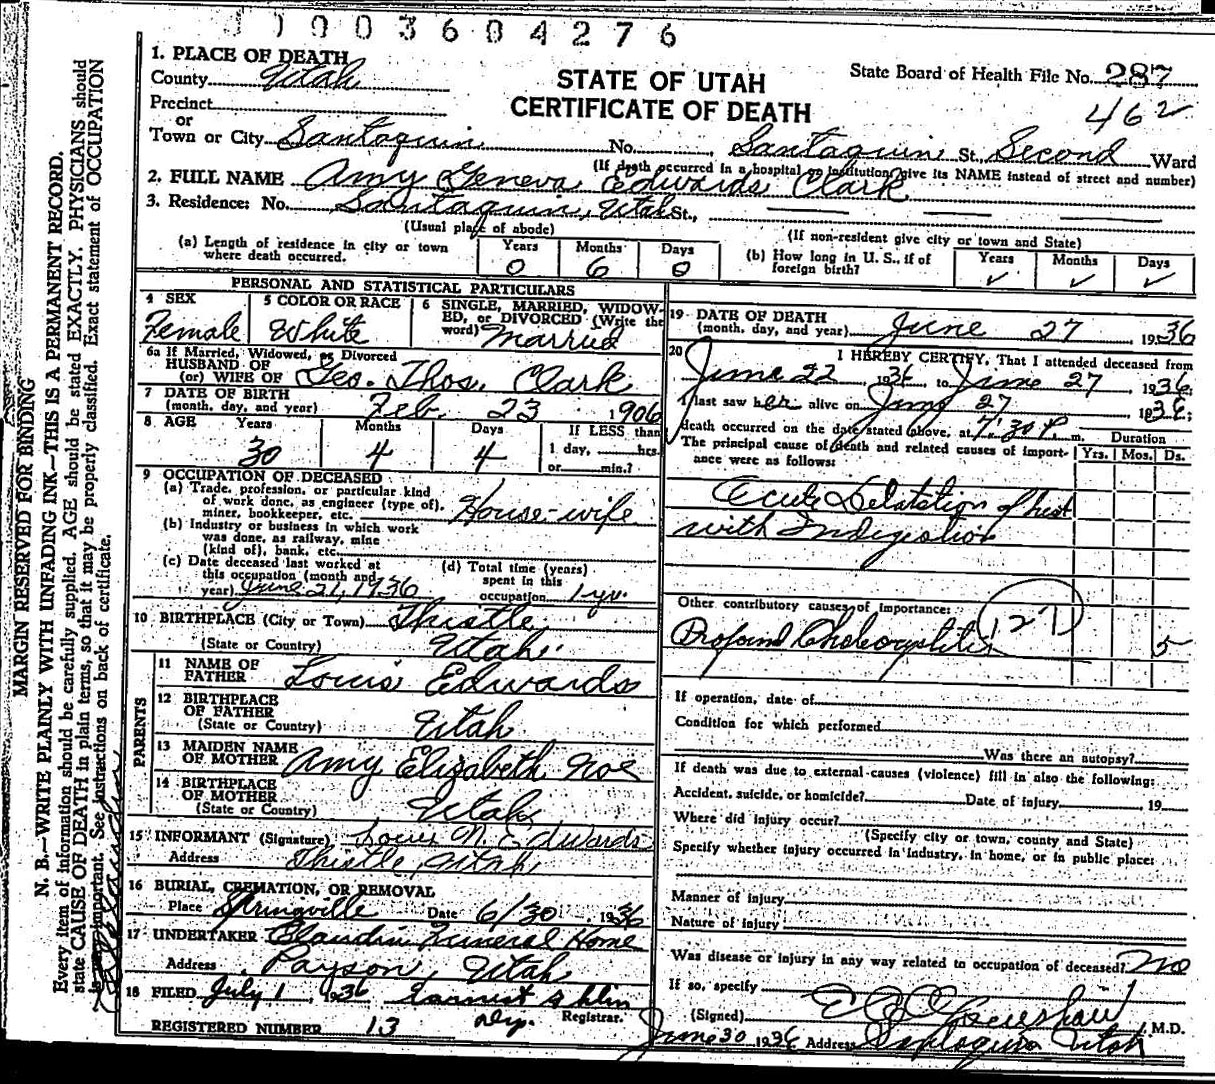 0003604276
1. PLACE OF DEATH
County Utah
STATE OF UTAH
CERTIFICATE OF DEATH
State Board of Health File No. 287
462
Precinct
or
Town or City Santaquin No. Santaquin St., Second Ward
(If death occurred in a hospital or institution give its NAME instead of street and number)
2. FULL NAME Amy Geneva Edwards Clark
3. Residence: No. Santaquin, Utah St.,
(Usual place of abode) (If non-resident give city or town and State)
(a) Length of residence in city or town where death occurred. Years 0 Months 6 Days 0
(b) How long in U. S., if of foreign birth? Years ✓ Months ✓ Days ✓
PERSONAL AND STATISTICAL PARTICULARS
4 SEX Female
5 COLOR OR RACE White
6 SINGLE, MARRIED, WIDOWED, or DIVORCED (Write the word) Married
6a If Married, Widowed, or Divorced
HUSBAND OF
(or) WIFE OF Geo. Thos. Clark
7 DATE OF BIRTH
(month, day, and year) Feb 23 1906
8 AGE Years 30 Months 4 Days 4 If LESS than 1 day, hrs. or min.?
9 OCCUPATION OF DECEASED
(a) Trade, profession, or particular kind of work done, as engineer (type of), miner, bookkeeper, etc. House-wife
(b) Industry or business in which work was done, as railway, mine (kind of), bank, etc.
(c) Date deceased last worked at this occupation (month and year) June 21, 1936
(d) Total time (years) spent in this occupation 1 yr.
10 BIRTHPLACE (City or Town) Thistle
(State or Country) Utah.
PARENTS
11 NAME OF FATHER Louis Edwards
12 BIRTHPLACE OF FATHER
(State or Country) Utah
13 MAIDEN NAME OF MOTHER Amy Elizabeth Noe
14 BIRTHPLACE OF MOTHER
(State or Country) Utah
15 INFORMANT (Signature) Louis N. Edwards
Address Thistle, Utah
16 BURIAL, CREMATION, OR REMOVAL
Place Springville Date 6/30, 1936
17 UNDERTAKER Claudin Funeral Home
Address Payson, Utah
18 FILED July 1, 1936 Registrar.
REGISTERED NUMBER 13 Dep.
19 DATE OF DEATH
(month, day, and year) June 27 1936
20 I HEREBY CERTIFY, That I attended deceased from
June 22, 1936 to June 27, 1936
I last saw her alive on June 27, 1936;
death occurred on the date stated above, at 7:30 P. m.
The principal cause of death and related causes of importance were as follows:
Duration
Yrs. Mos. Ds.
Acute Delatation of heat
with Indigestion
Other contributory causes of importance: 127
Profound Cholecystitis 5
If operation, date of
Condition for which performed
Was there an autopsy?
If death was due to external causes (violence) fill in also the following:
Accident, suicide, or homicide? Date of injury, 19
Where did injury occur?
(Specify city or town, county and State)
Specify whether injury occurred in industry, in home, or in public place:
Manner of injury
Nature of injury
Was disease or injury in any way related to occupation of deceased? No
If so, specify
(Signed) M.D.
June 30 1936 Address Santaquin Utah
MARGIN RESERVED FOR BINDING
N. B.—WRITE PLAINLY WITH UNFADING INK—THIS IS A PERMANENT RECORD.
Every item of information should be carefully supplied. AGE should be stated EXACTLY. PHYSICIANS should
state CAUSE OF DEATH in plain terms, so that it may be properly classified. Exact statement of OCCUPATION
is very important. See instructions on back of certificate.